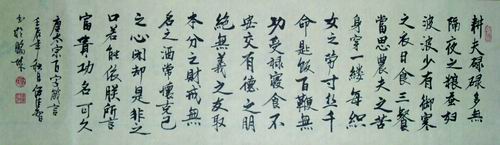 耕夫碌碌多無
隔夜之粮蚕妇
波波少有御寒
之衣日食三餐
當思農夫之苦
身穿一縷每織
女之勞寸丝千
命匙飯百鞭無
功受禄寢食不
安交有德之朋
絶無義之友取
本分之财戒無
名之酒常懷克己
之心闭却是非之
口若能依朕所言
富貴功名可久
唐太宗百字箴言
年秋月
書於